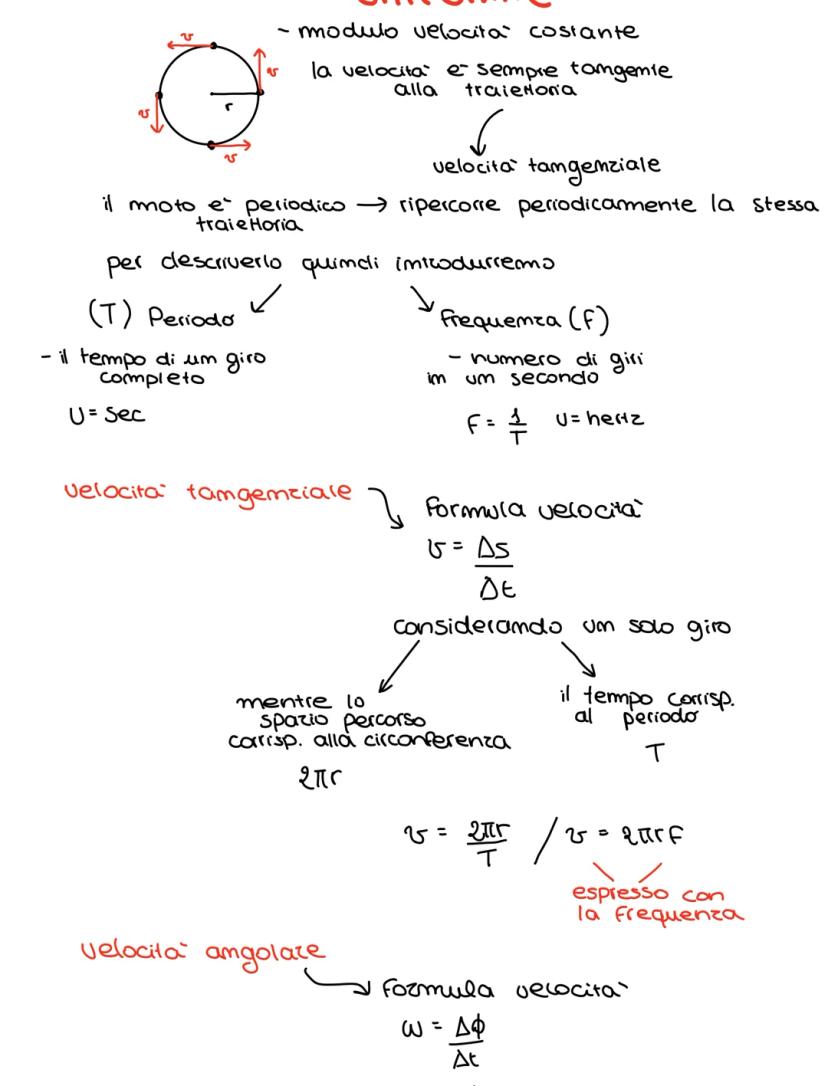 - modulo velocità costante
v
v
r
v
v
la velocità è sempre tangente
alla traiettoria
velocità tangenziale
il moto è periodico → ripercorre periodicamente la stessa
traiettoria
per descriverlo quindi introdurremo
(T) Periodo
Frequenza (F)
- il tempo di un giro
completo
- numero di giri
in un secondo
U = sec
F = 1/T U = hertz
velocità tangenziale
Formula velocità
v = Δs/Δt
considerando un solo giro
mentre lo
spazio percorso
corrisp. alla circonferenza
2πr
il tempo corrisp.
al periodo
T
v = 2πr/T / v = 2πrF
espresso con
la Frequenza
velocità angolare
Formula velocità
ω = Δϕ/Δt